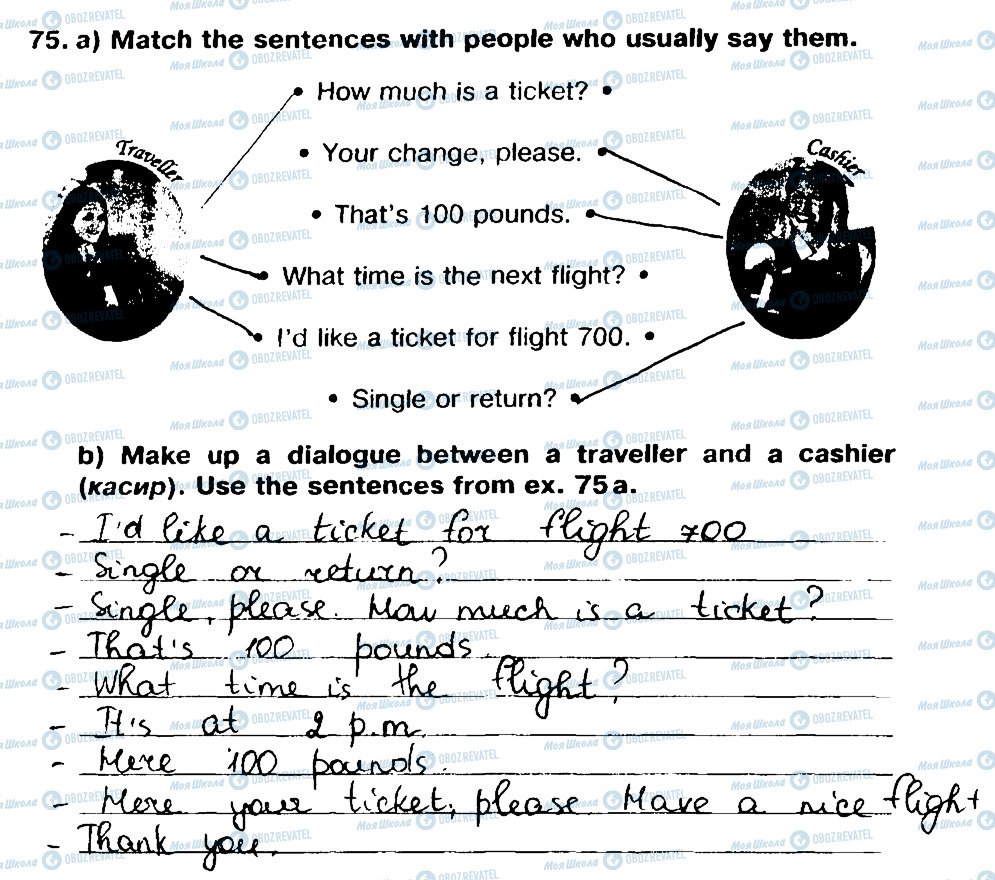 75. a) Match the sentences with people who usually say them.
• How much is a ticket? •
Traveller
Cashier
• Your change, please. •
• That's 100 pounds. •
• What time is the next flight? •
• I'd like a ticket for flight 700. •
• Single or return? •
b) Make up a dialogue between a traveller and a cashier
(касир). Use the sentences from ex. 75a.
- I'd like a ticket for flight 700
- Single or return?
- Single, please. How much is a ticket?
- That's 100 pounds.
- What time is the flight?
- It's at 2 p.m.
- Here 100 pounds.
- Here your ticket, please. Have a nice flight
- Thank you.
МояШкола OBOZREVATEL